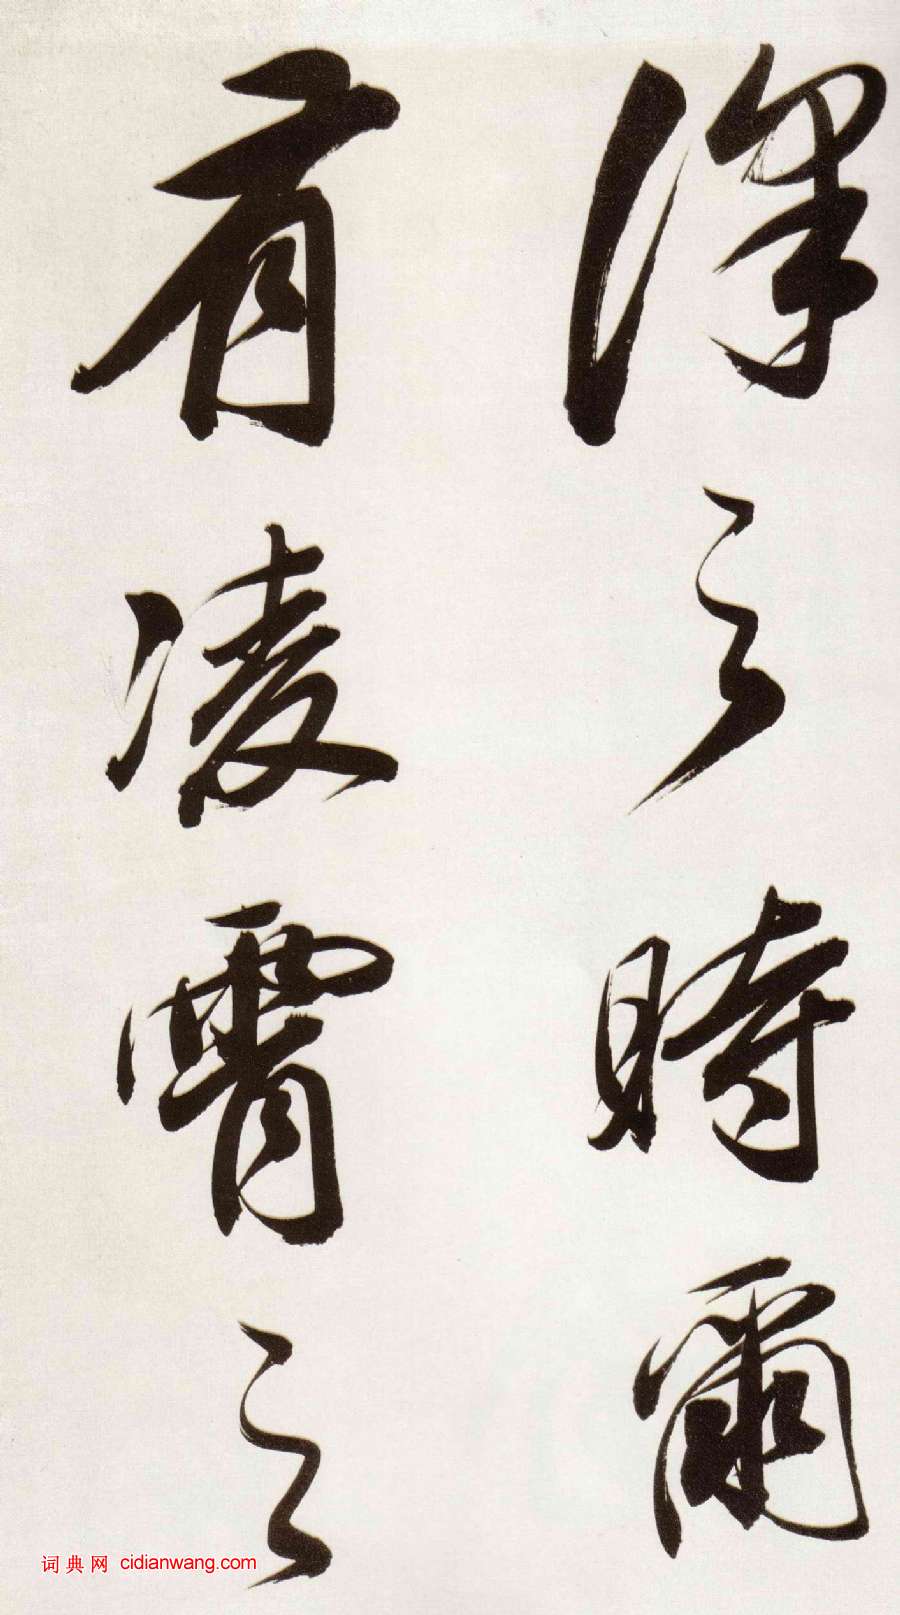 深之時爾
有凌霄之
词典网 cidianwang.com